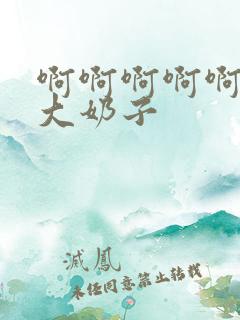 啊啊啊啊啊
大奶子
滅鳳
未经同意禁止转载